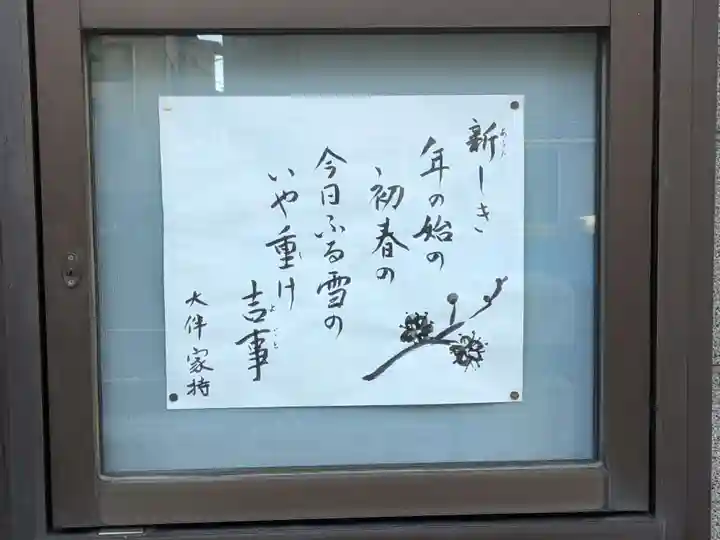 新しき
あらた
年の始の
初春の
今日ふる雪の
いや重け
吉事
よごと
大伴家持